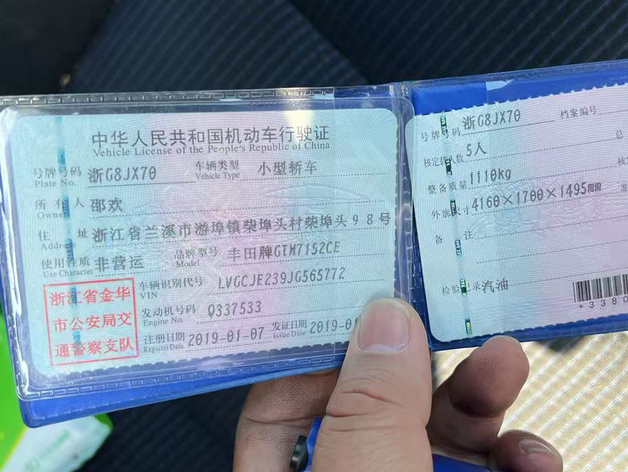 中华人民共和国机动车行驶证
Vehicle License of the People's Republic of China
号牌号码 浙G8JX70 车辆类型 小型轿车
Plate No. Vehicle Type
所有人 邵欢
Owner
住址 浙江省兰溪市游埠镇柴埠头村柴埠头98号
Address
使用性质 非营运 品牌型号 丰田牌GTM7152CE
Use Character
车辆识别代号 LVGCJE239JG565772
VIN
发动机号码 Q337533
Engine No.
注册日期 2019-01-07 发证日期 2019-01
Register Date Issue Date
浙江省金华
市公安局交
通警察支队
号牌号码 浙G8JX70 档案编号
核定载人数 5人 总
整备质量 1110kg
外廓尺寸 4160×1700×1495mm
备注
检验记录 汽油
*3380